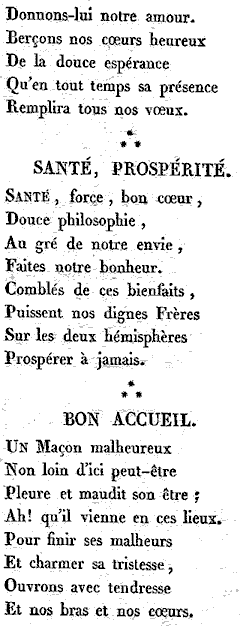 Donnons-lui notre amour.
Berçons nos cœurs heureux
De la douce espérance
Qu'en tout temps sa présence
Remplira tous nos vœux.
SANTÉ, PROSPÉRITÉ.
SANTÉ, force, bon cœur,
Douce philosophie,
Au gré de notre envie,
Faites notre bonheur.
Comblés de ces bienfaits,
Puissent nos dignes Frères
Sur les deux hémisphères
Prospérer à jamais.
BON ACCUEIL.
UN Maçon malheureux
Non loin d'ici peut-être
Pleure et maudit son être ;
Ah! qu'il vienne en ces lieux.
Pour finir ses malheurs
Et charmer sa tristesse,
Ouvrons avec tendresse
Et nos bras et nos cœurs.